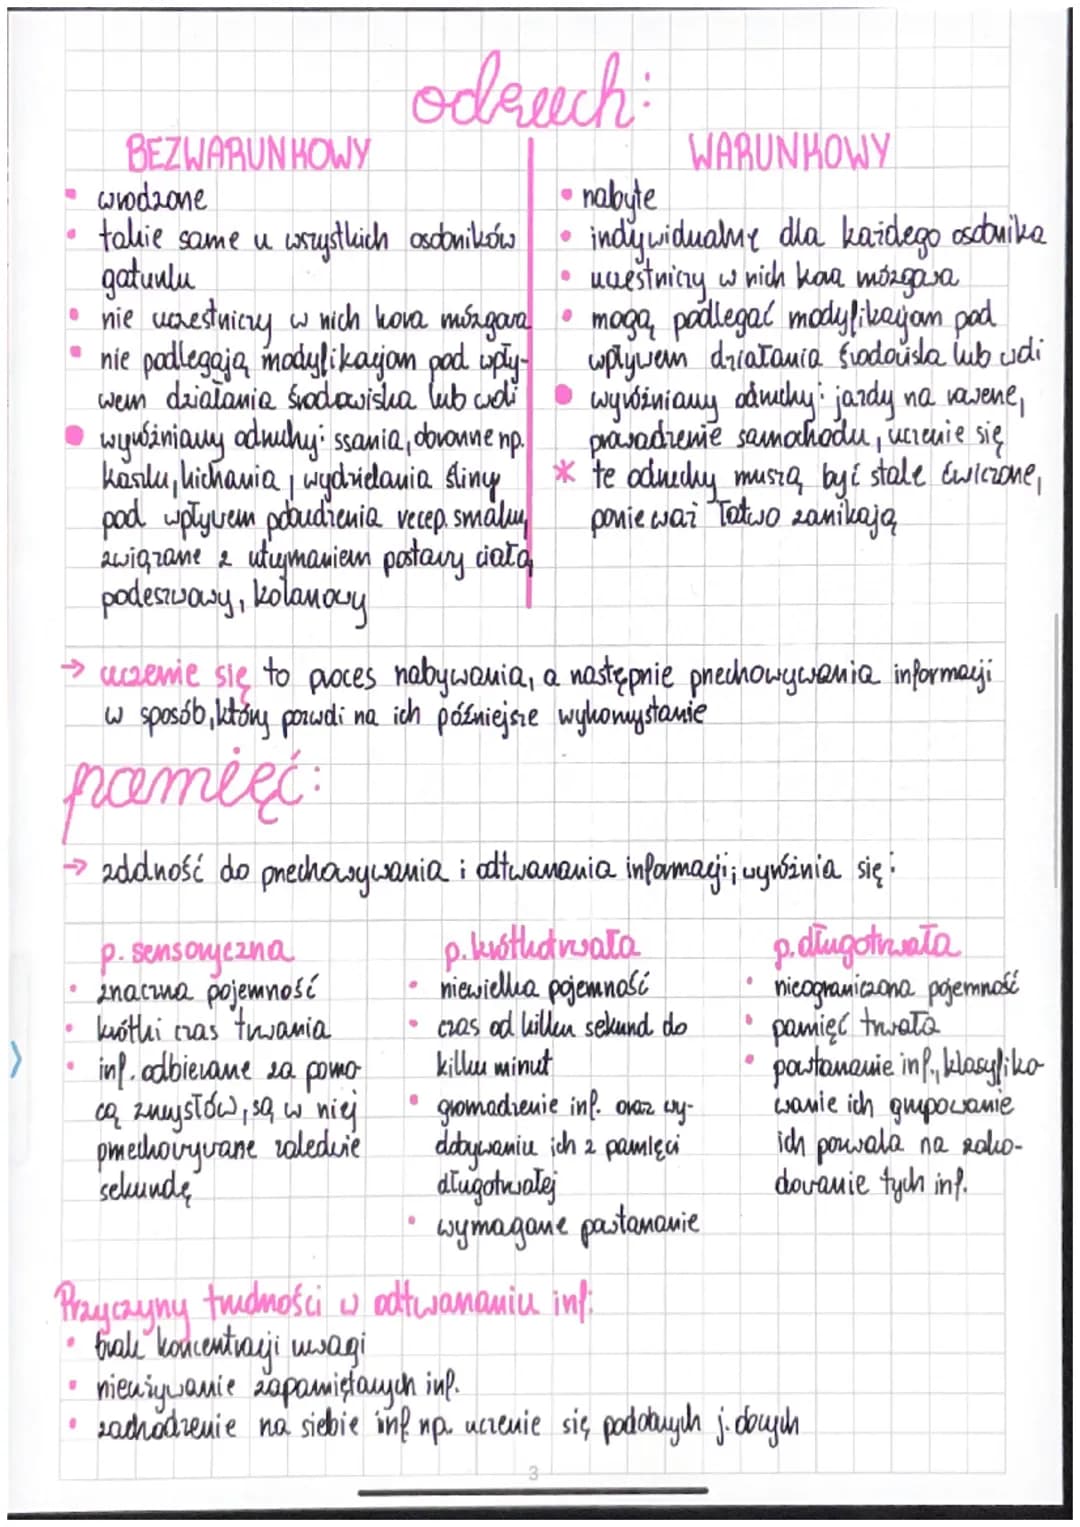 odruch:
BEZWARUNKOWY
• wrodzone
• takie same u wszystkich osobników
gatunku
• nie uczestniczy w nich kora mózgowa
• nie podlegają modyfikacjom pod wpły-
wem działania środowiska lub woli
• wyróżniamy odruchy: ssania, obronne np.
kaszlu, kichania, wydzielania śliny
pod wpływem pobudzenia recep. smaku,
związane z utrzymaniem postawy ciała,
podeszwowy, kolanowy
WARUNKOWY
• nabyte
• indywidualne dla każdego osobnika
• uczestniczy w nich kora mózgowa
• mogą podlegać modyfikacjom pod
wpływem działania środowiska lub woli
• wyróżniamy odruchy: jazdy na rowerze,
prowadzenie samochodu, uczenie się
* te odruchy muszą być stale ćwiczone,
ponieważ łatwo zanikają
→ uczenie się to proces nabywania, a następnie przechowywania informacji
w sposób, który pozwoli na ich późniejsze wykorzystanie
pamięć:
→ zdolność do przechowywania i odtwarzania informacji; wyróżnia się:
p. sensoryczna
• znaczna pojemność
• krótki czas trwania
• inf. odbierane za pomo-
cą zmysłów, są w niej
przechowywane zaledwie
sekundę
p. krótkotrwała
• niewielka pojemność
• czas od kilku sekund do
kilku minut
• gromadzenie inf. oraz wy-
dobywaniu ich z pamięci
długotrwałej
• wymagane powtarzanie
p. długotrwała
• nieograniczona pojemność
• pamięć trwała
• powtarzanie inf., klasyfiko-
wanie ich grupowanie
ich pozwala na zako-
dowanie tych inf.
Przyczyny trudności w odtwarzaniu inf:
• brak koncentracji uwagi
• nieużywanie zapamiętanych inf.
• zachodzenie na siebie inf np. uczenie się podobnych j. obcych
3